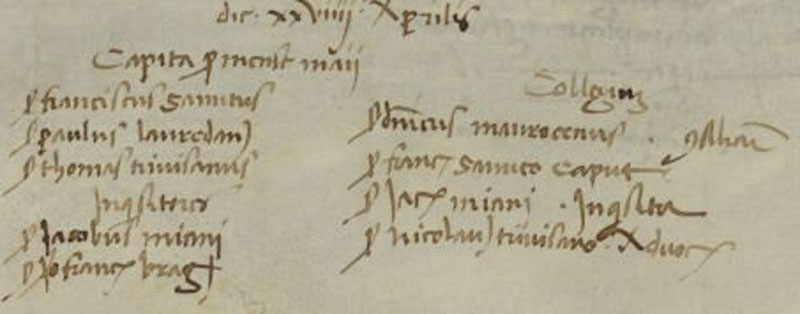 die. xxviiij. Aprilis
Capita p mense maij
S franciscus Sanutus
S paulus lauredanus
S thomas trivisanus
Inqsitores
S Jacobus miani
S Jo franc brag
Collegium
S dnicus maurocenus . 9siliari
S franc Sanuto Caput
S Jac miani . Inqsitor
S nicolaus trivisano . Advoc